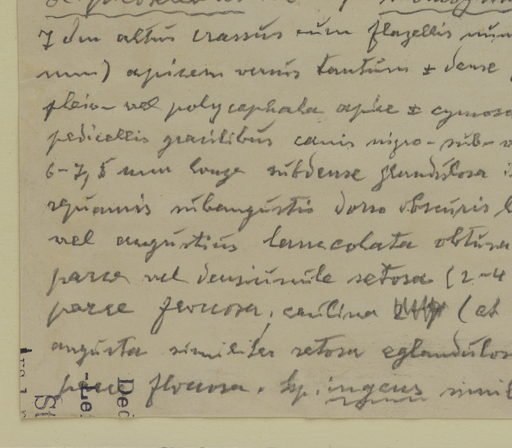 7 dm altus crassus cum flagellis
mm) apicem versus tantum ± dense
pleio- vel polycephala apice ± cymosa
pedicellis gracilibus canis nigro-sub-
6-7,5 mm longe subdense glandulosa
squamis subangustis dorso obscuris
vel angustius lanceolata obtusa
parce vel densiuscule setosa (2-4
parce floccosa, caulina (et
angusta similiter setosa eglandulosa
parce floccosa. Sp. ingens simil
Dec
-Le
St